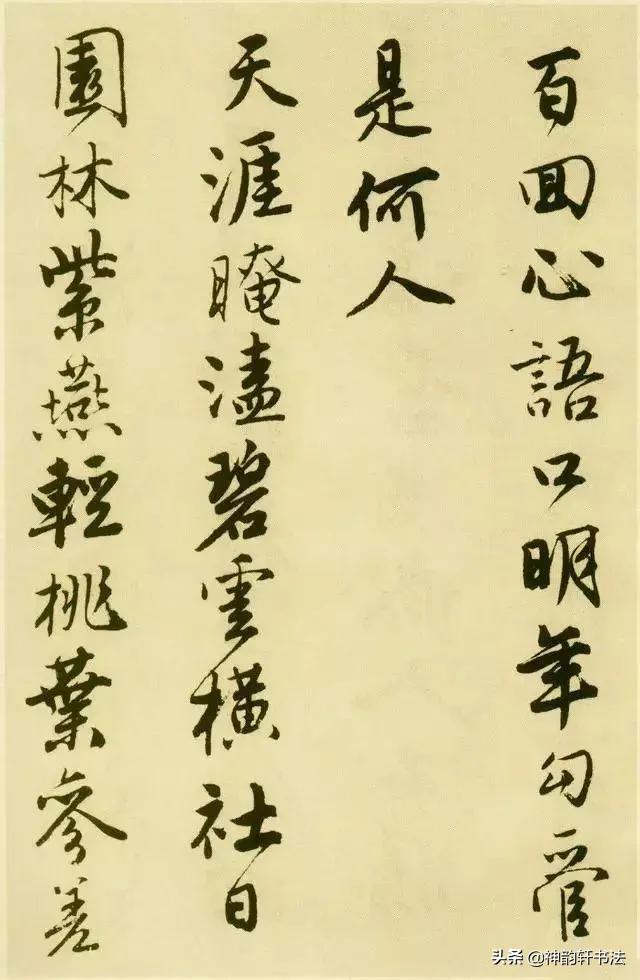 百囬心語口明年勾管
是何人
天涯晻溘碧雲橫社日
園林紫燕輕桃葉參差
头条 @神韵轩书法